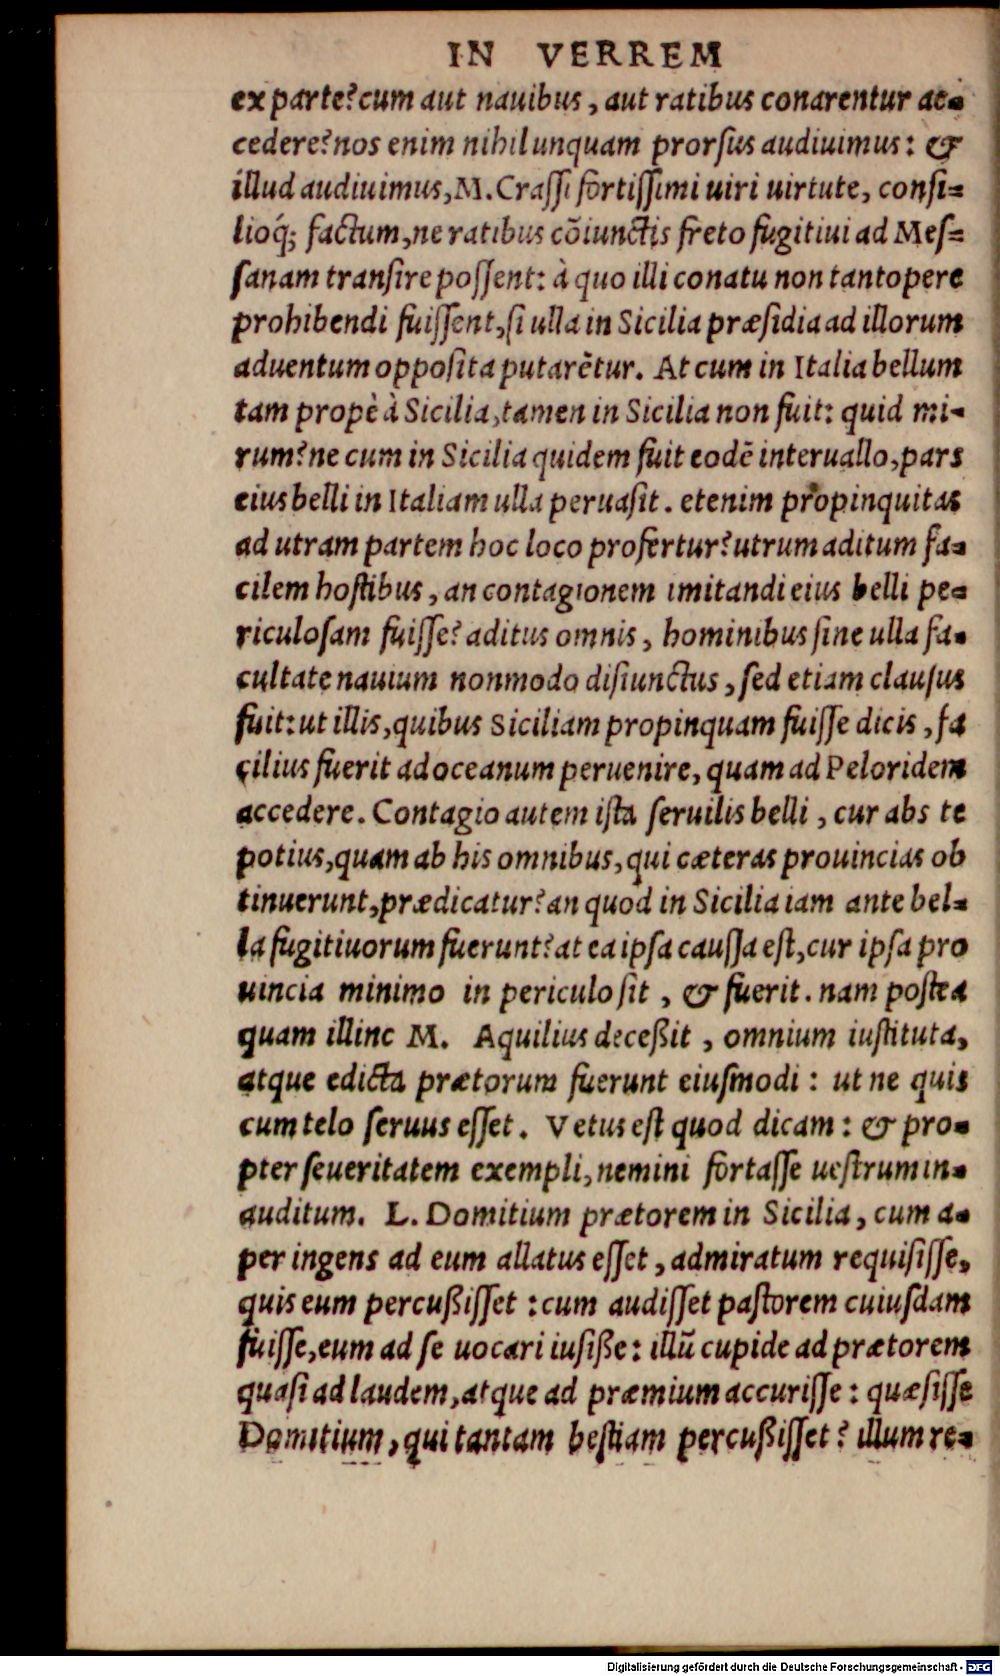 IN VERREM
ex parte? cum aut nauibus, aut ratibus conarentur ac-
cedere? nos enim nihil unquam prorsus audiuimus: &
illud audiuimus, M. Crassi fortissimi uiri uirtute, consi-
lioq́; factum, ne ratibus cõiunctis freto fugitiui ad Mes-
sanam transire possent: à quo illi conatu non tantopere
prohibendi fuissent, si ulla in Sicilia præsidia ad illorum
aduentum opposita putarẽtur. At cum in Italia bellum
tam propè à Sicilia, tamen in Sicilia non fuit: quid mi-
rum? ne cum in Sicilia quidem fuit eodẽ interuallo, pars
eius belli in Italiam ulla peruasit. etenim propinquitas
ad utram partem hoc loco profertur? utrum aditum fa-
cilem hostibus, an contagionem imitandi eius belli pe-
riculosam fuisse? aditus omnis, hominibus sine ulla fa-
cultate nauium nonmodo disiunctus, sed etiam clausus
fuit: ut illis, quibus Siciliam propinquam fuisse dicis, fa
cilius fuerit ad oceanum peruenire, quam ad Peloridem
accedere. Contagio autem ista seruilis belli, cur abs te
potius, quam ab his omnibus, qui cæteras prouincias ob
tinuerunt, prædicatur? an quod in Sicilia iam ante bel-
la fugitiuorum fuerunt? at ea ipsa caussa est, cur ipsa pro
uincia minimo in periculo sit, & fuerit. nam postea
quam illinc M. Aquilius deceßit, omnium iustituta,
atque edicta prætorum fuerunt eiusmodi: ut ne quis
cum telo seruus esset. Vetus est quod dicam: & pro-
pter seueritatem exempli, nemini fortasse uestrum in-
auditum. L. Domitium prætorem in Sicilia, cum a-
per ingens ad eum allatus esset, admiratum requisisse,
quis eum percußisset: cum audisset pastorem cuiusdam
fuisse, eum ad se uocari iusiße: illũ cupide ad prætorem
quasi ad laudem, atque ad præmium accurisse: quæsisse
Domitium, qui tantam bestiam percußisset? illum re-
Digitalisierung gefördert durch die Deutsche Forschungsgemeinschaft - DFG